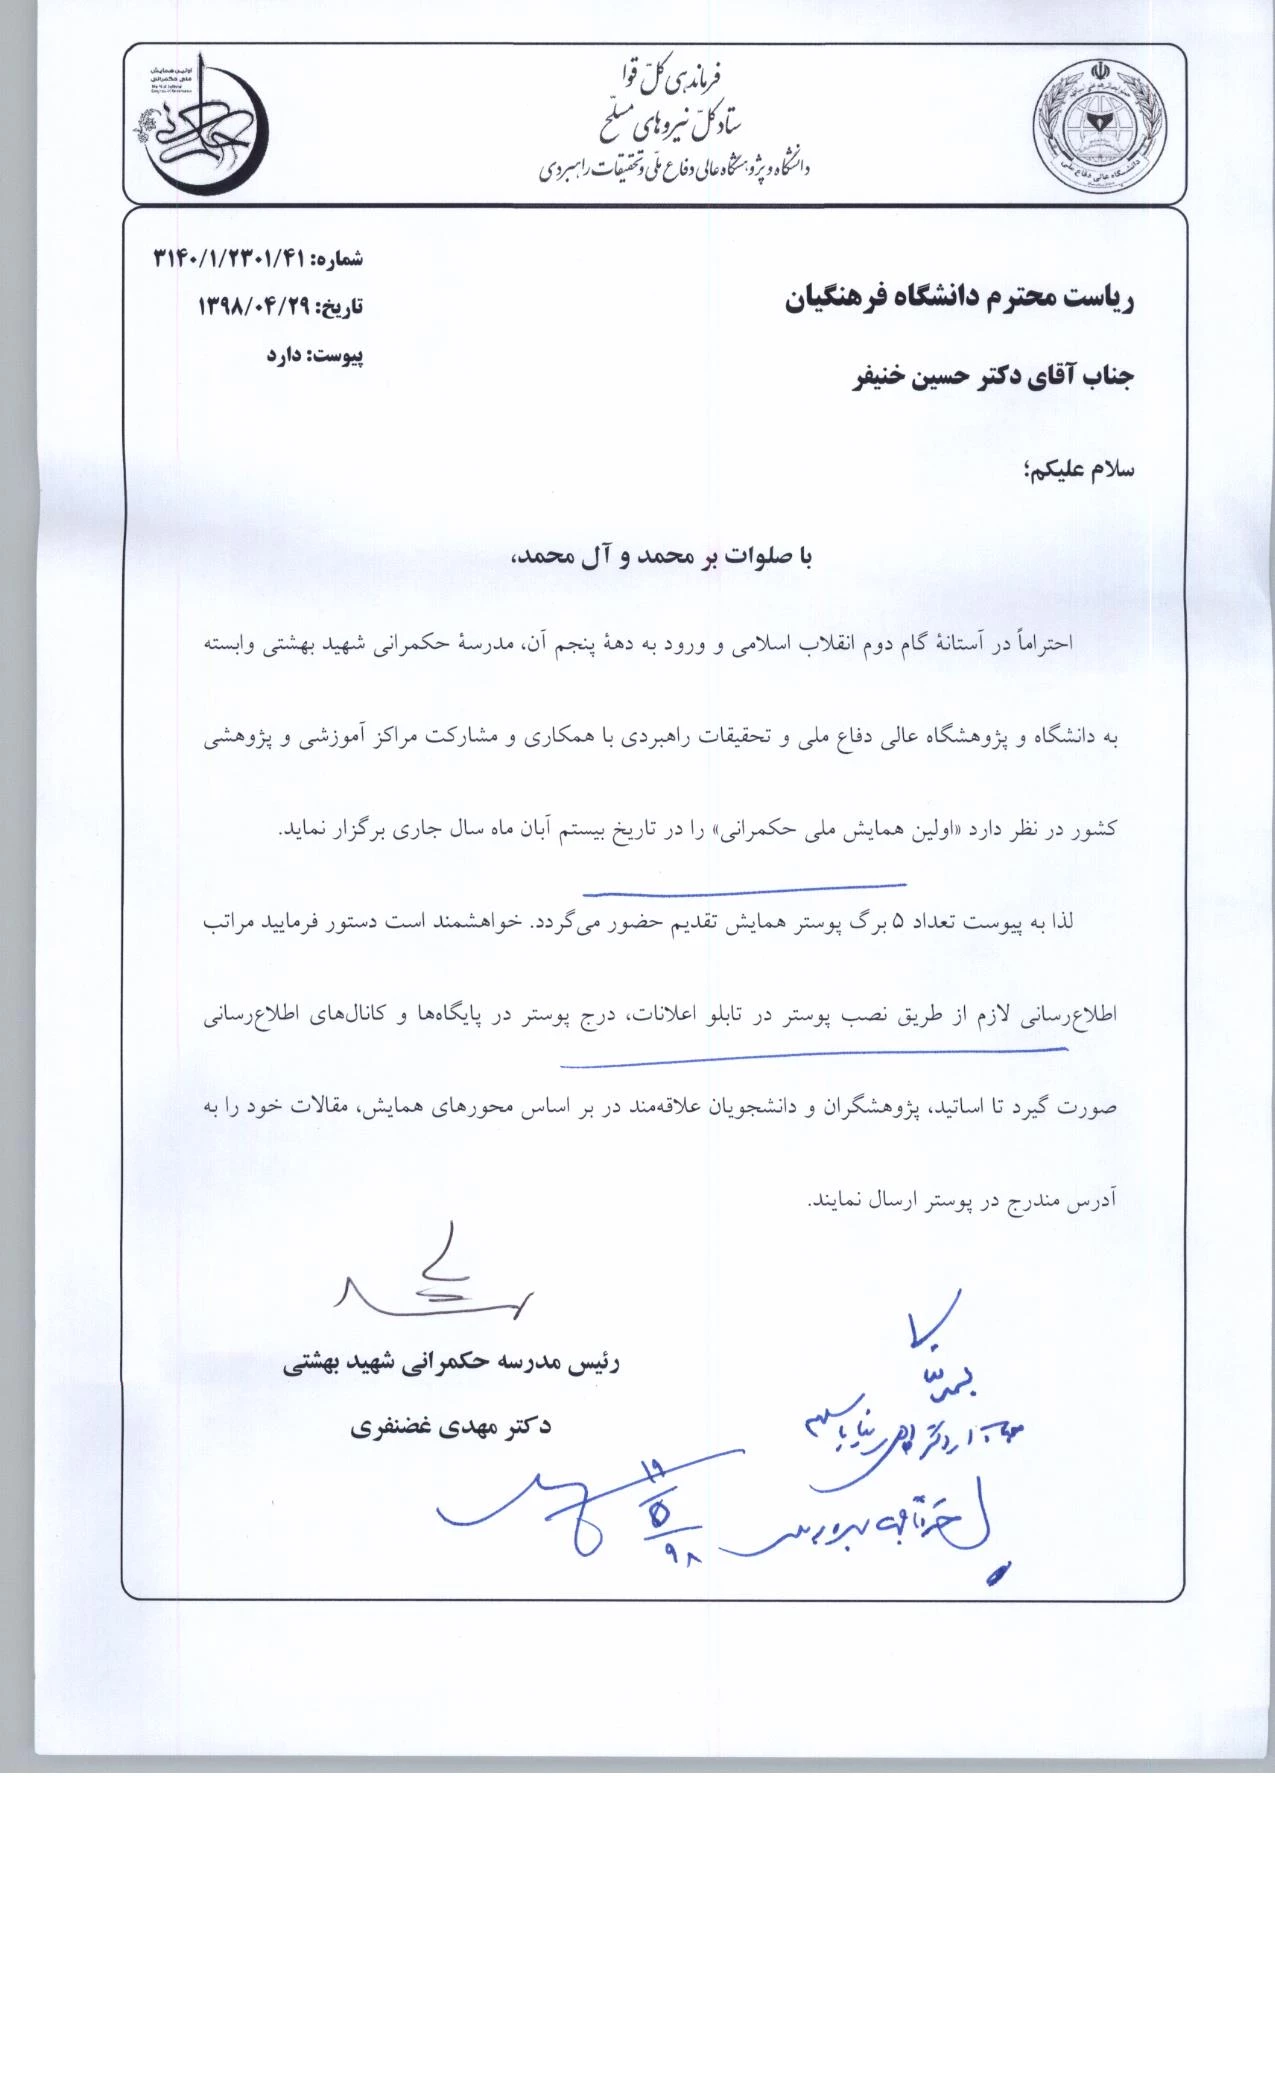 فرماندهی کلّ قوا
ستاد کلّ نیروهای مسلّح
دانشگاه و پژوهشگاه عالی دفاع ملّی و تحقیقات راهبردی
اولین همایش
ملی حکمرانی
حکمرانی
دانشگاه عالی دفاع ملی
شماره: ۳۱۴۰/۱/۲۳۰۱/۴۱
تاریخ: ۱۳۹۸/۰۴/۲۹
پیوست: دارد
ریاست محترم دانشگاه فرهنگیان
جناب آقای دکتر حسین خنیفر
سلام علیکم؛
با صلوات بر محمد و آل محمد،
احتراماً در آستانهٔ گام دوم انقلاب اسلامی و ورود به دههٔ پنجم آن، مدرسهٔ حکمرانی شهید بهشتی وابسته
به دانشگاه و پژوهشگاه عالی دفاع ملی و تحقیقات راهبردی با همکاری و مشارکت مراکز آموزشی و پژوهشی
کشور در نظر دارد «اولین همایش ملی حکمرانی» را در تاریخ بیستم آبان ماه سال جاری برگزار نماید.
لذا به پیوست تعداد ۵ برگ پوستر همایش تقدیم حضور می‌گردد. خواهشمند است دستور فرمایید مراتب
اطلاع‌رسانی لازم از طریق نصب پوستر در تابلو اعلانات، درج پوستر در پایگاه‌ها و کانال‌های اطلاع‌رسانی
صورت گیرد تا اساتید، پژوهشگران و دانشجویان علاقه‌مند در بر اساس محورهای همایش، مقالات خود را به
آدرس مندرج در پوستر ارسال نمایند.
رئیس مدرسه حکمرانی شهید بهشتی
دکتر مهدی غضنفری
با سلام
۱۹
۵
۹۸